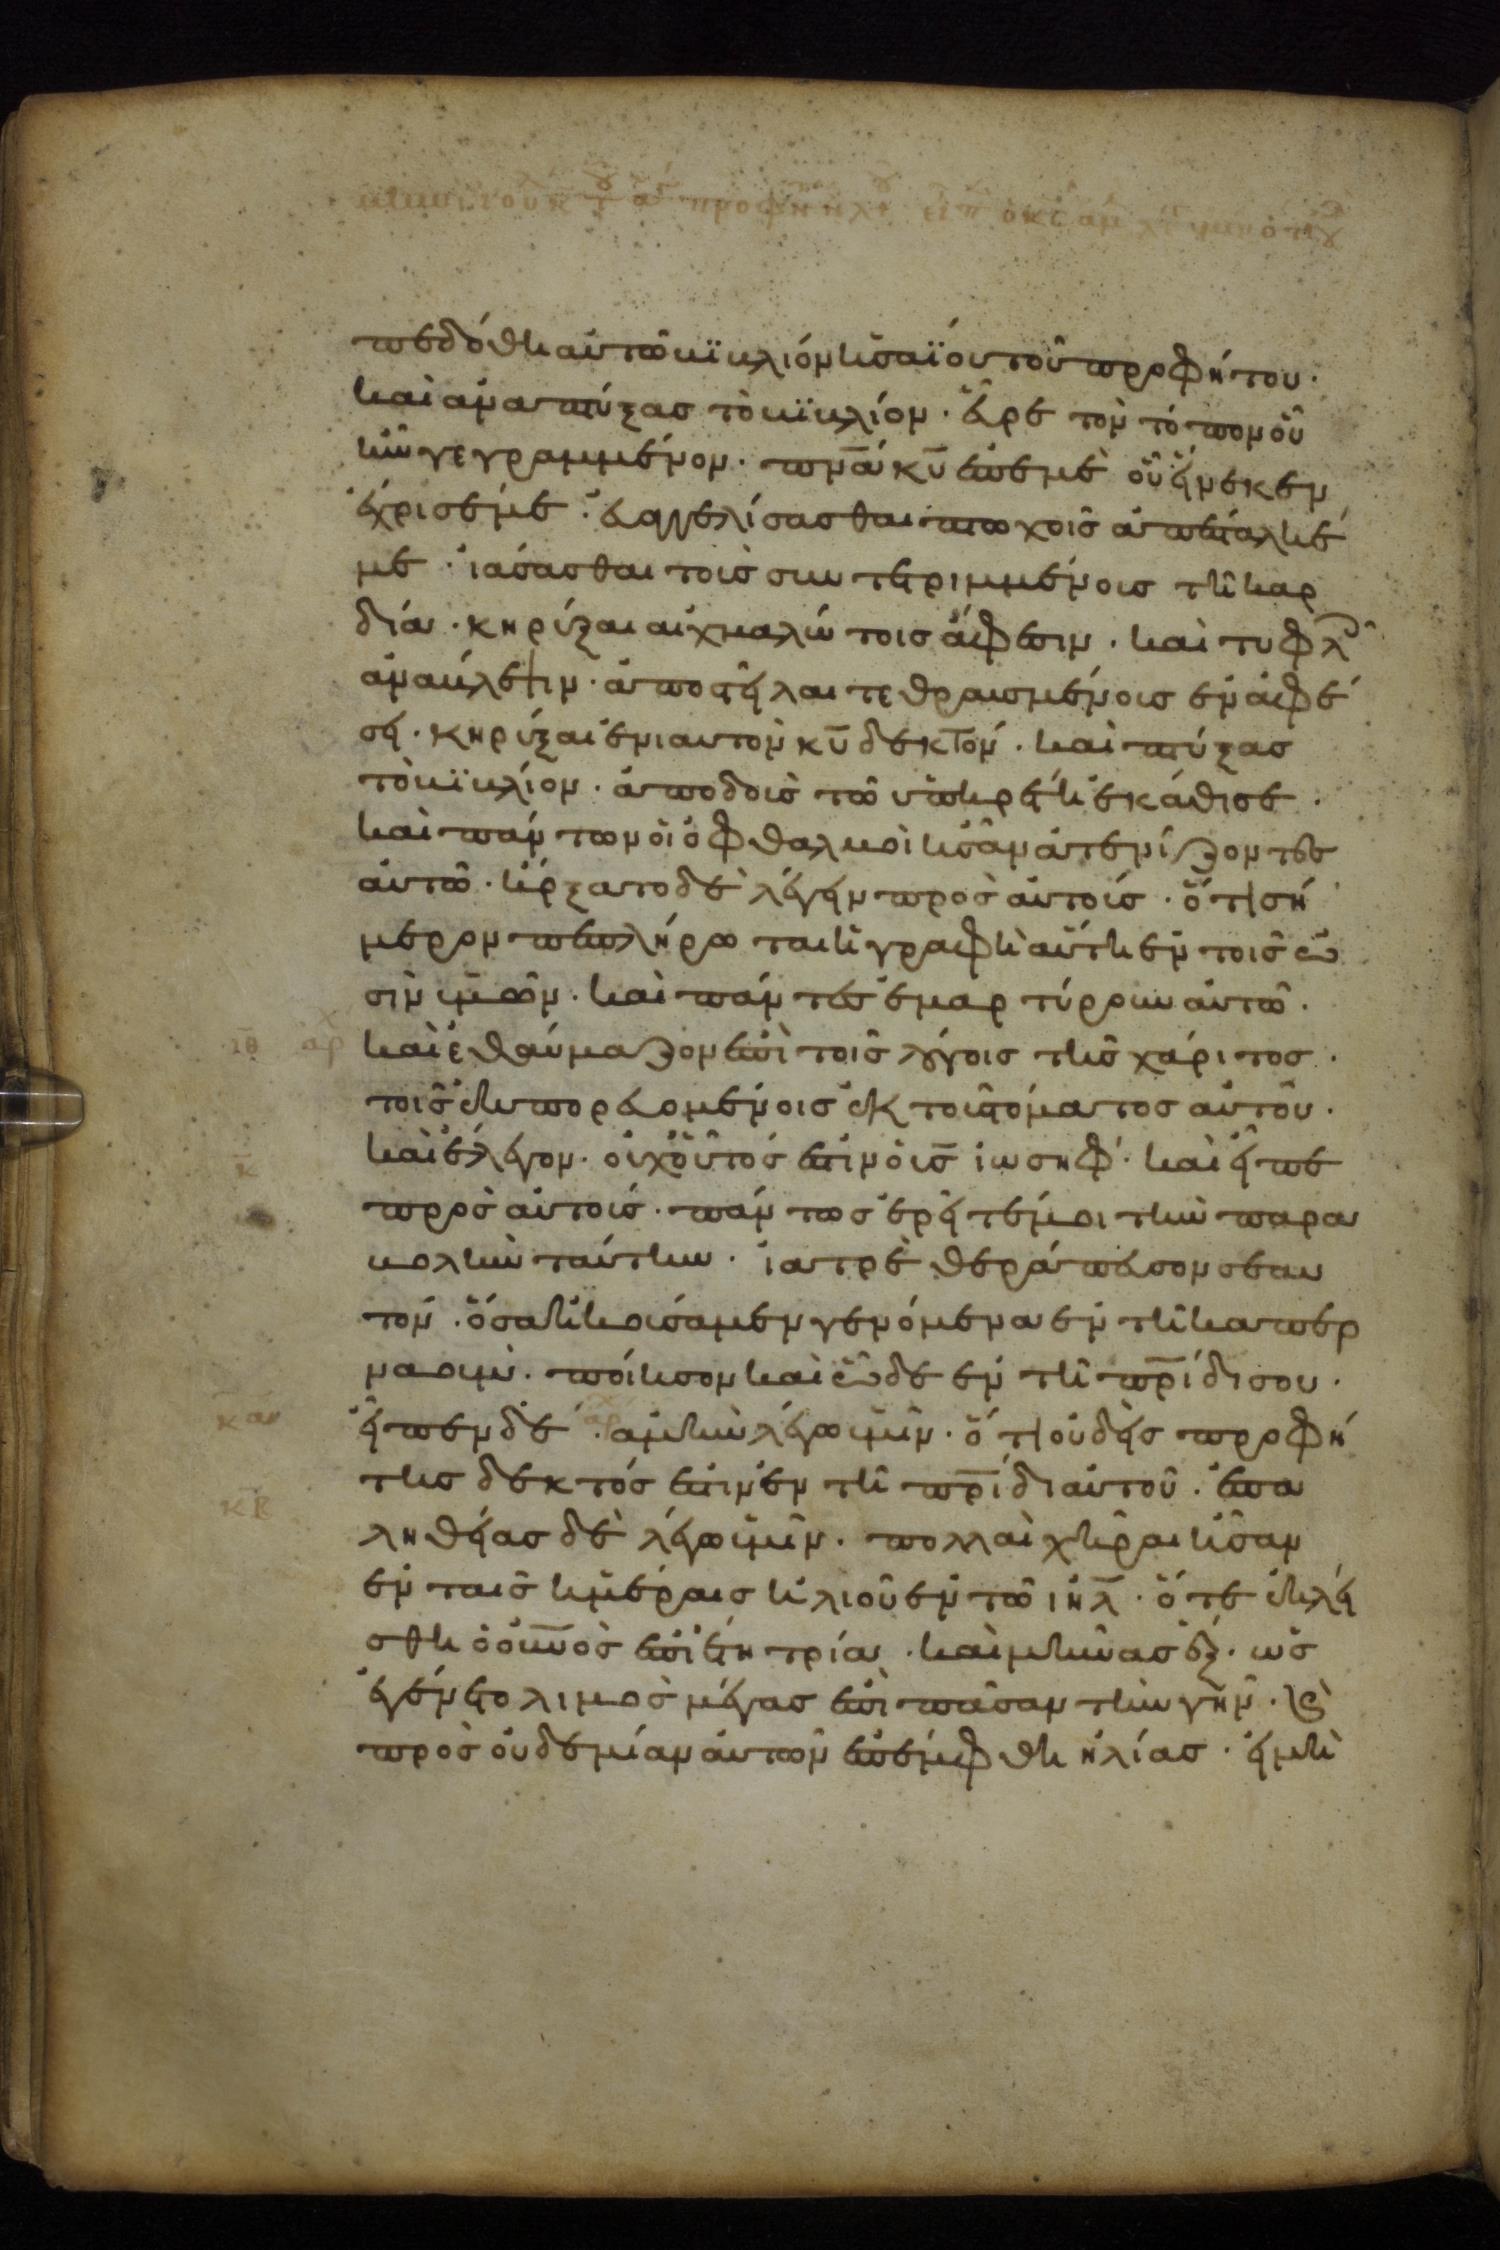 πεδόθη αὐτῶ βϊβλίον ἡσαΐου τοῦ προφήτου·
καὶ ἀναπτύξας τὸ βϊβλίον· εὗρε τὸν τόπον οὗ
ἦν γεγραμμένον· πνα κυ ἐπεμὲ οὗ εἵνεκεν
ἔχρισέ με· εὐαγγελίσασθαι πτωχοῖς ἀπέσταλκέ
με· ἰάσασθαι τοῖς συντετριμμένοις τῆ καρ
δία· κηρύξαι αἰχμαλώτοις ἄφεσιν· καὶ τυφλ
ἀνάβλεψιν· ἀποστεῖλαι τεθραυσμένοις ἐν ἀφέ
σει· κηρύξαι ἐνιαυτὸν κυ δεκτόν· καὶ πτύξας
τὸ βϊβλίον· ἀποδοὺς τῶ ὑπηρέτη ἐκάθισε·
καὶ πάντων οἱ ὀφθαλμοὶ ἦσαν ἀτενίζοντες
αὐτῶ· ἤρξατο δὲ λέγειν πρὸς αὐτούς· ὅτι σή
μερον πεπλήρωται ἡ γραφὴ αὕτη ἐν τοῖς ὠ
σὶν ὑμῶν· καὶ πάντες ἐμαρτύρουν αὐτῶ·
ιθ αρχ καὶ ἐθαύμαζον ἐπὶ τοῖς λόγοις τῆς χάριτος·
τοῖς ἐκπορευομένοις ἐκ τοῦ στόματος αὐτοῦ·
κ καὶ ἔλεγον· οὐχ οὗτός ἐστιν ὁ υς ἰωσήφ· καὶ εἶπε
πρὸς αὐτούς· πάντως ἐρεῖτέ μοι τὴν παρα
βολὴν ταύτην· ἰατρὲ θεράπευσον σεαυ
τόν· ὅσα ἠκούσαμεν γενόμενα ἐν τῆ καπερ
ναούμ· ποίησον καὶ ὧδε ἐν τῆ πρίδι σου·
κα εἶπεν δέ· ἀμὴν λέγω ὑμῖν· ὅτι οὐδεὶς προφή
της δεκτός ἐστιν ἐν τῆ πρίδι αὐτοῦ· ἐπα
κβ ληθείας δὲ λέγω ὑμῖν· πολλαὶ χῆραι ἦσαν
ἐν ταῖς ἡμέραις ἡλιοῦ ἐν τῶ ιηλ· ὅτε ἐκλεί
σθη ὁ οὐνὸς ἐπὶ ἔτη τρία· καὶ μῆνας ἕξ· ὡς
ἐγένετο λιμὸς μέγας ἐπὶ πᾶσαν τὴν γῆν· καὶ
πρὸς οὐδεμίαν αὐτῶν ἐπέμφθη ἠλίας· εἰ μὴ